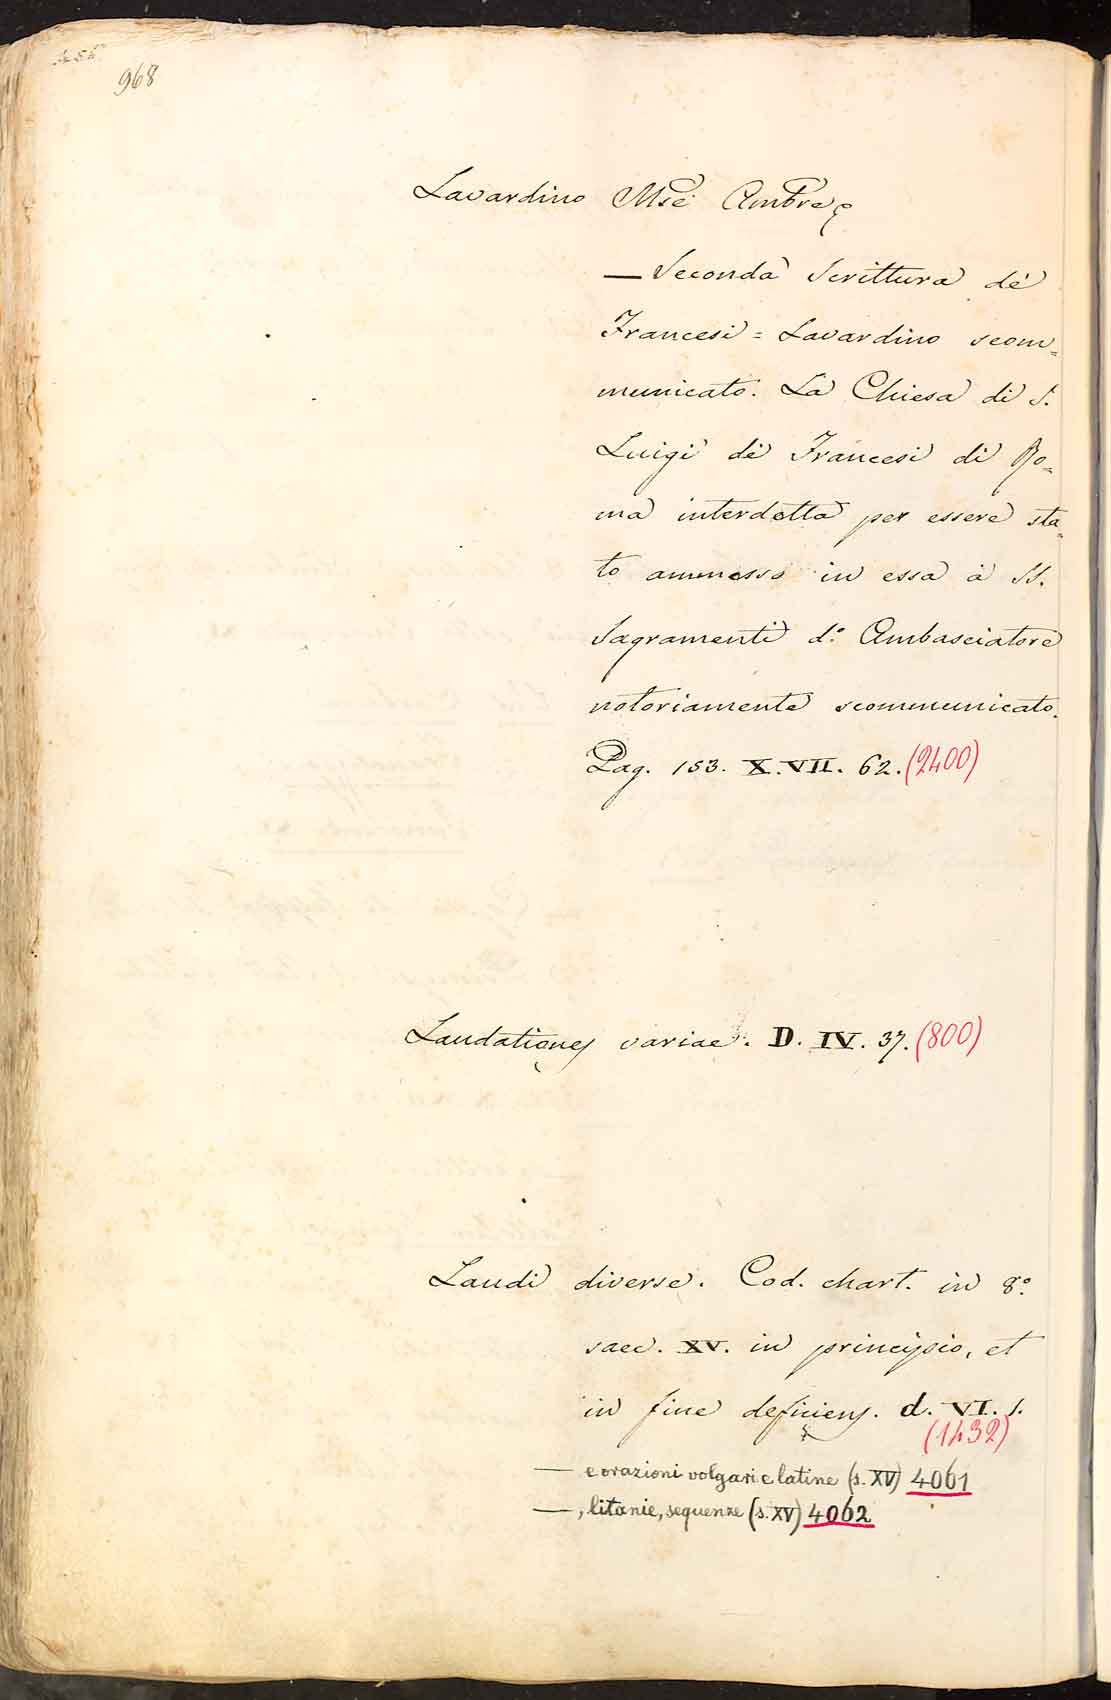 968
Lavardino Mse Ambre
— Seconda Scrittura de'
Francesi = Lavardino scom=
municato. La Chiesa di S.
Luigi de' Francesi di Ro=
ma interdetta per essere sta=
to ammesso in essa a' SS.
Sagramenti d.º Ambasciatore
notoriamente scommunicato.
Pag. 153. X. VII. 62. (2400)
Laudationes variae. D. IV. 37. (800)
Laudi diverse. Cod. chart. in 8.º
saec. XV. in principio, et
in fine deficiens. d. VI. 1.
(1432)
— e orazioni volgari e latine (s. XV) 4061
—, litanie, sequenze (s. XV) 4062